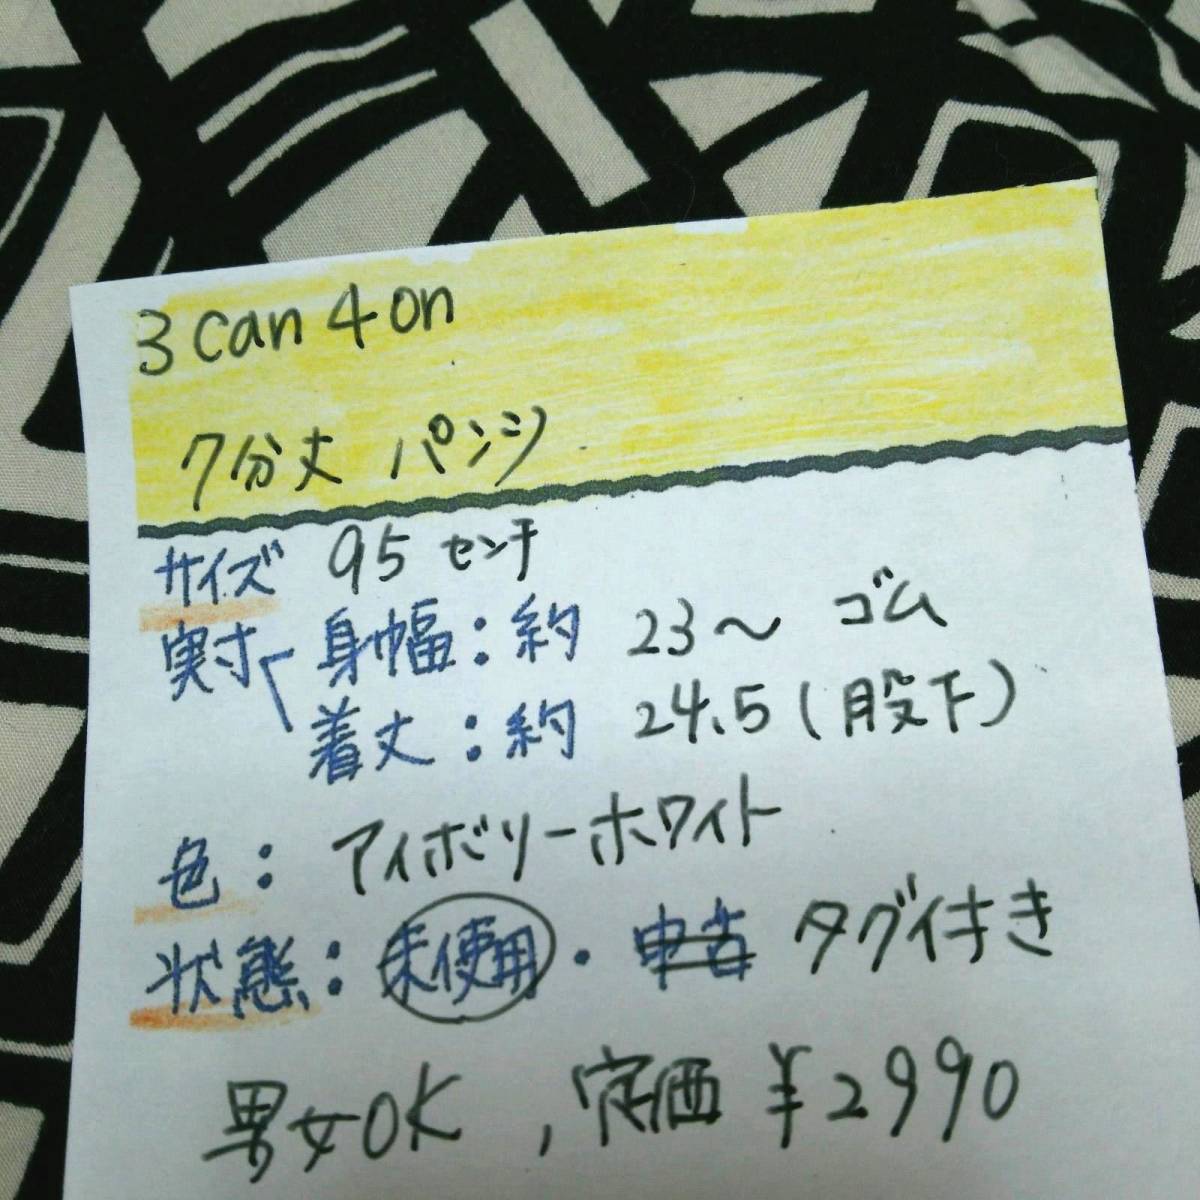 3can4on
7分丈 パンツ
サイズ 95 センチ
実寸 身幅:約 23〜 ゴム
着丈:約 24.5(股下)
色: アイボリーホワイト
状態: 未使用・中古 タグ付き
男女OK, 定価 ¥2990